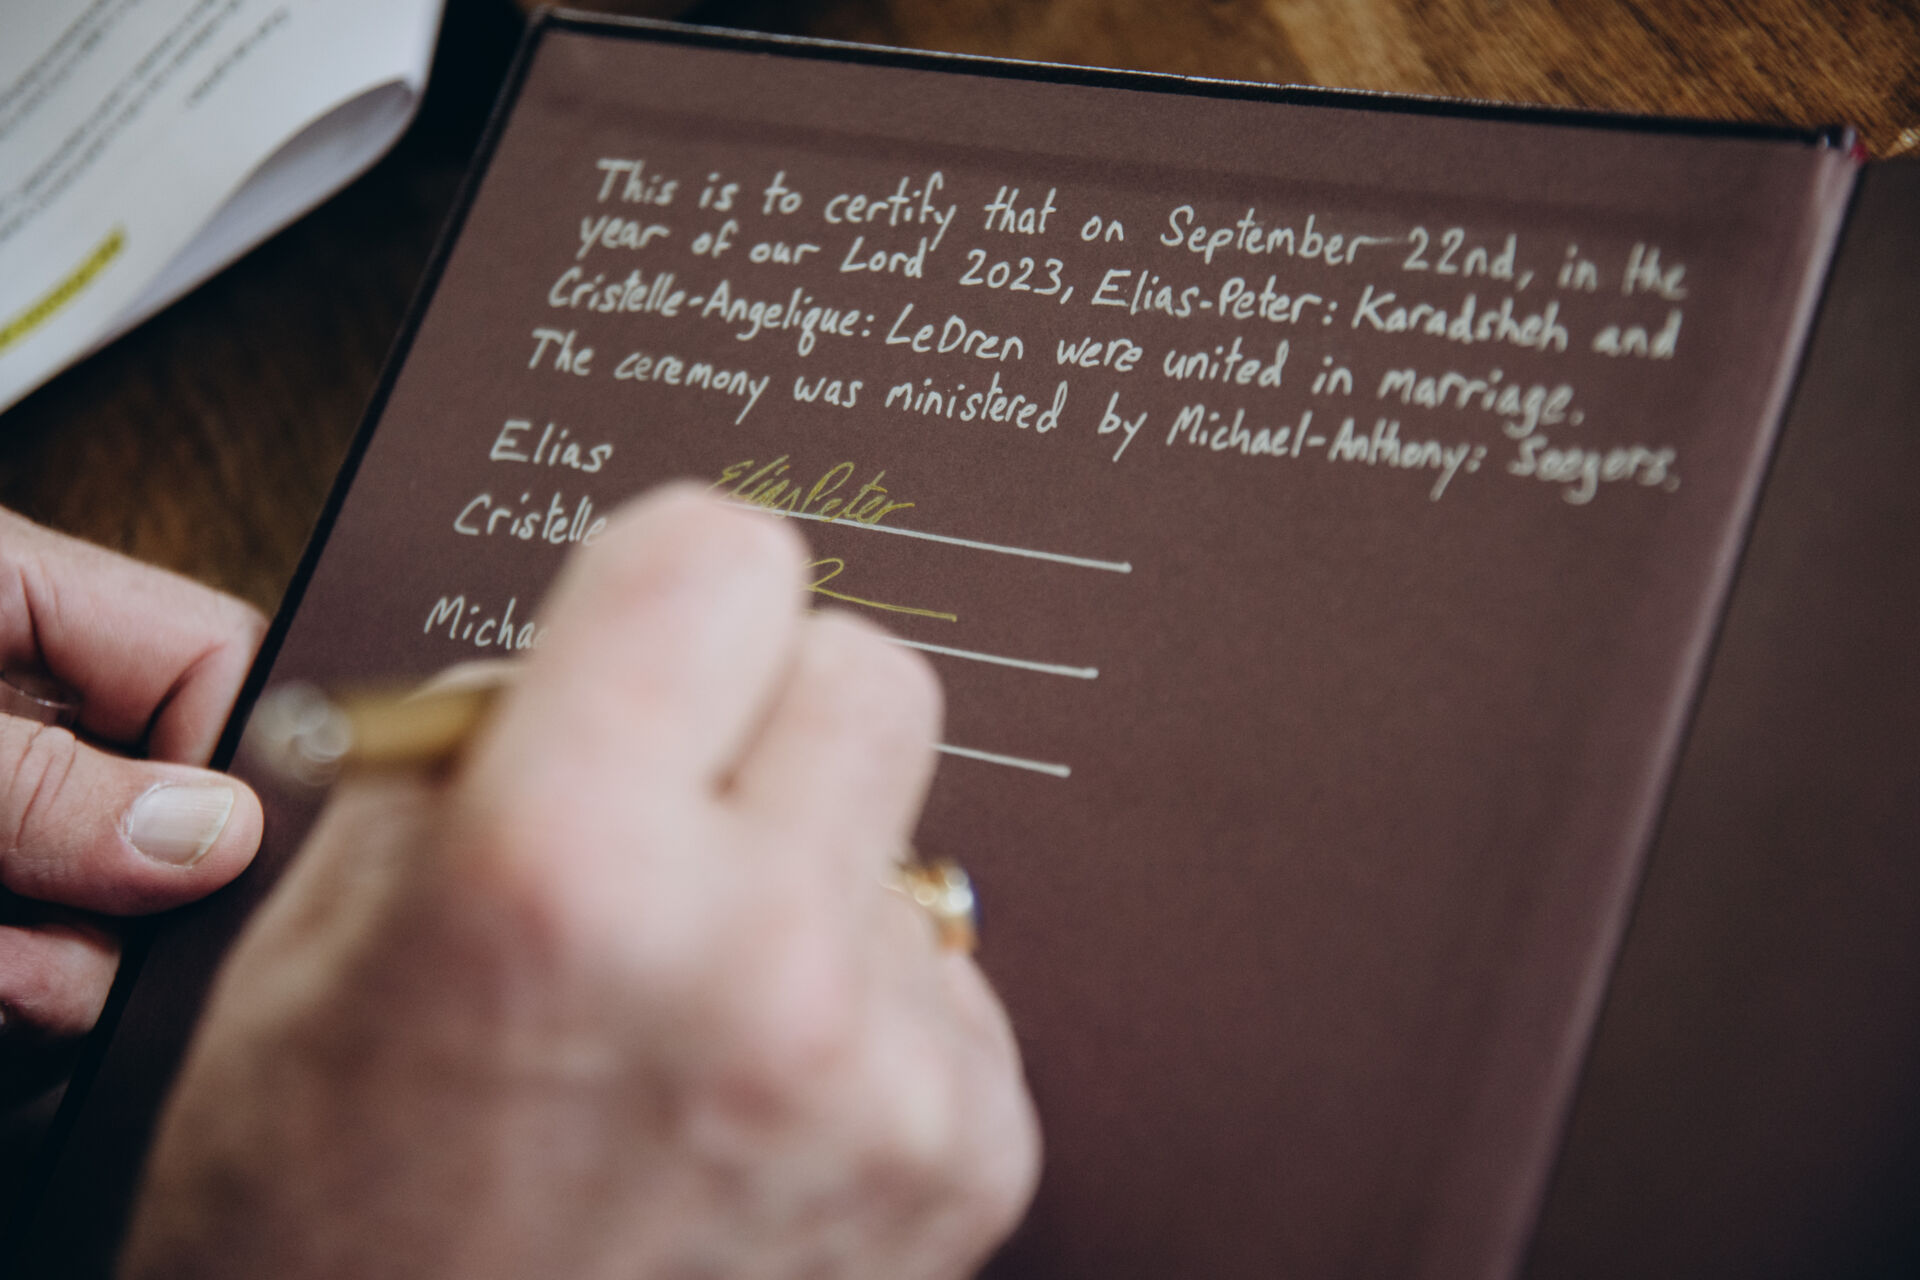 This is to certify that on September 22nd, in the
year of our Lord 2023, Elias-Peter: Karadsheh and
Cristelle-Angelique: LeDren were united in marriage.
The ceremony was ministered by Michael-Anthony: Seegers.
Elias
Elias Peter
Cristelle
Michae